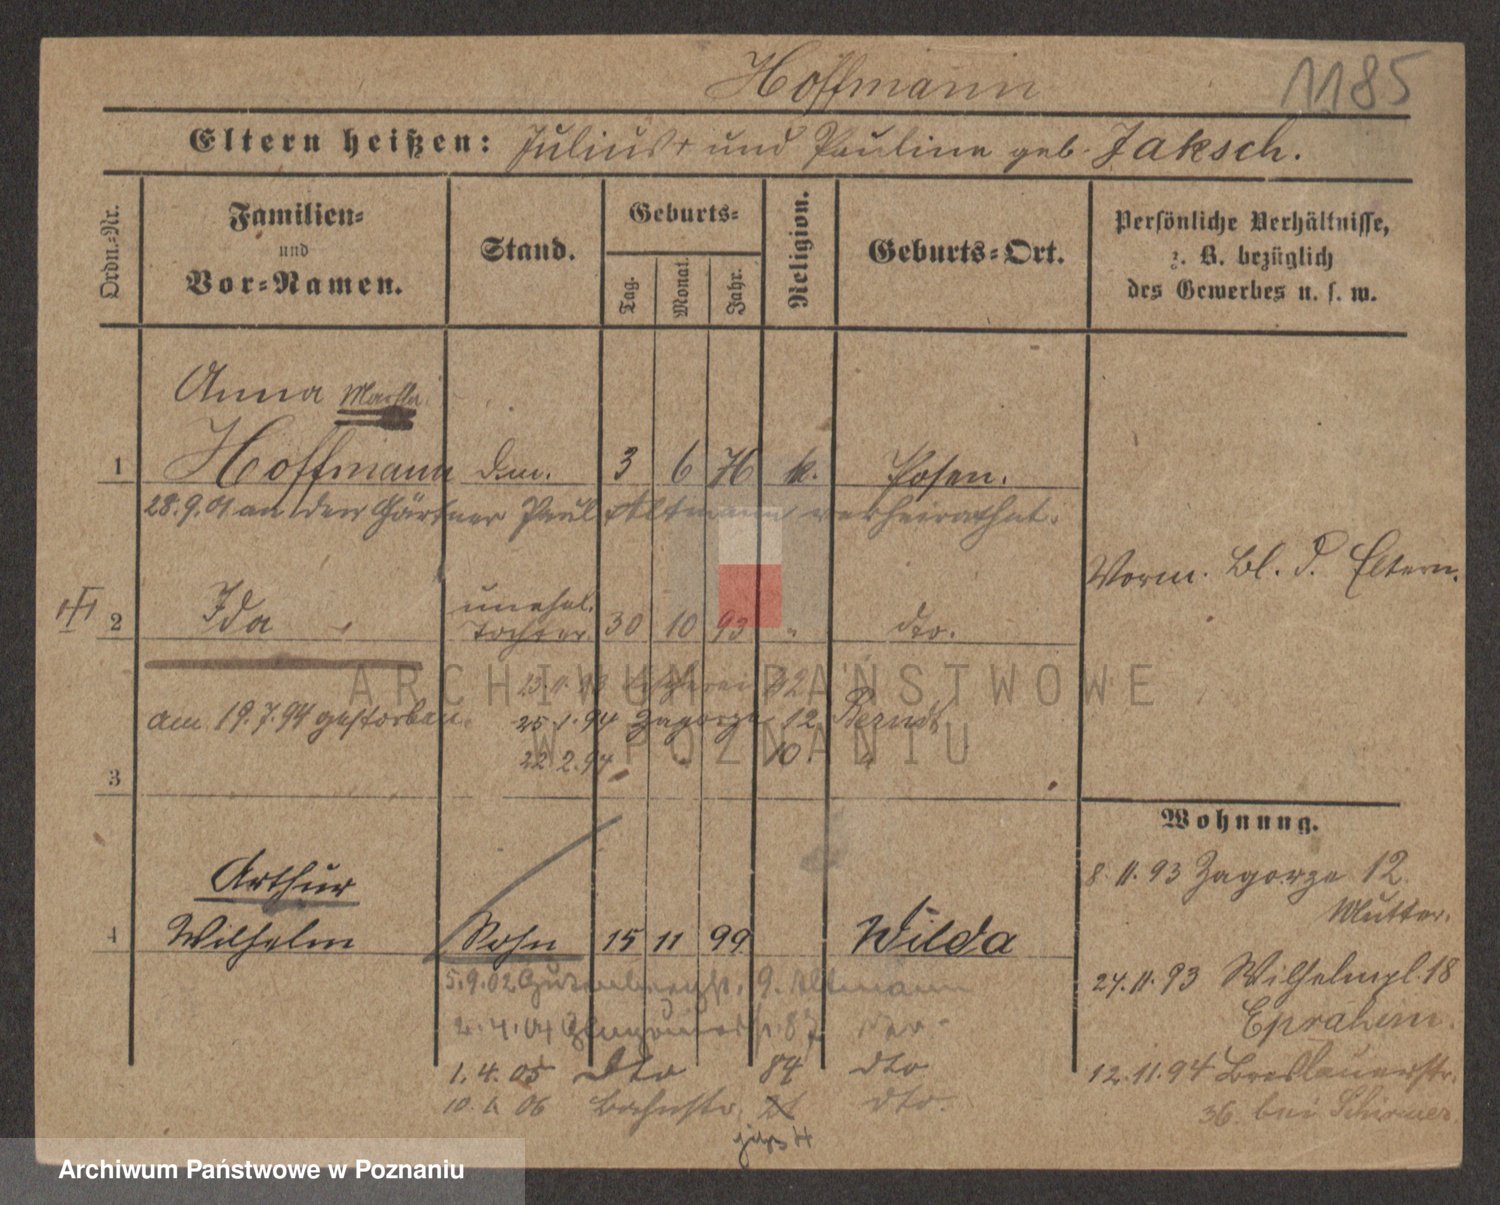 Hoffmann 1185
Eltern heißen: Julius † und Pauline geb. Jaksch.
Ordn.=Nr.
Familien=
und
Vor=Namen.
Stand.
Geburts=
Tag.
Monat.
Jahr.
Religion.
Geburts=Ort.
Persönliche Verhältnisse,
z. B. bezüglich
des Gewerbes u. s. w.
Anna Martha
1 Hoffmann 3 6 76 k. Posen.
28.9.01 an den Gärtner Paul Altmann verheirathet.
Vorm. Bl. d. Eltern.
2 Ida unehel.
Tochter 30 10 93 " dto.
am 19.7.94 gestorben.
25.1.94 Zagorze 12 Berndt
22.2.94 " 10 "
3
Wohnung.
8.11.93 Zagorze 12.
Mutter.
Arthur
4 Wilhelm Sohn 15 11 99 Wilda
27.11.93 Wilhelmpl. 18
Ephraim.
5.9.02 9. Altmann
2.4.04 87
1.4.05 dto 84 dto
12.11.94 Breslauerstr.
36 bei Schirmer.
06 Bahnstr. dto.
ARCHIWUM PAŃSTWOWE
W POZNANIU
Archiwum Państwowe w Poznaniu